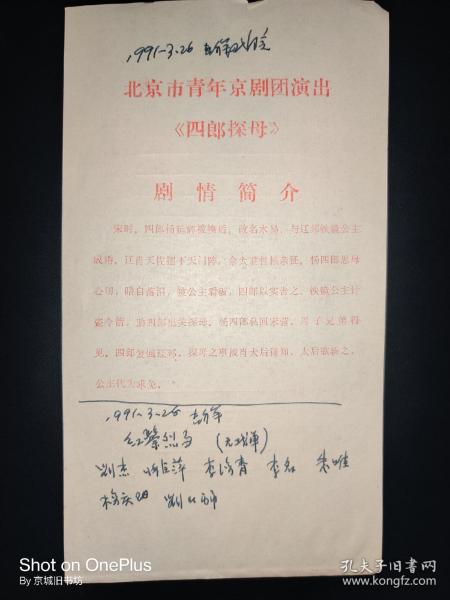 1991-3-26
北京市青年京剧团演出
《四郎探母》
剧情简介
宋时，四郎杨延辉被擒后，改名木易，与辽邦铁镜公主
成婚。辽肖天佐摆下天门阵，佘太君挂帅亲征，杨四郎思母
心切，暗自落泪，被公主看破，四郎以实告之，铁镜公主计
盗令箭，助四郎出关探母，杨四郎私回宋营，母子兄弟得
见，四郎复回辽邦，探母之事被肖太后得知，太后欲斩之，
公主代为求免。
1991-3-26
红鬃烈马 (无戏单)
刘杰 李 李 朱
刘
Shot on OnePlus
By 京城旧书坊
孔夫子旧书网
www.kongfz.com